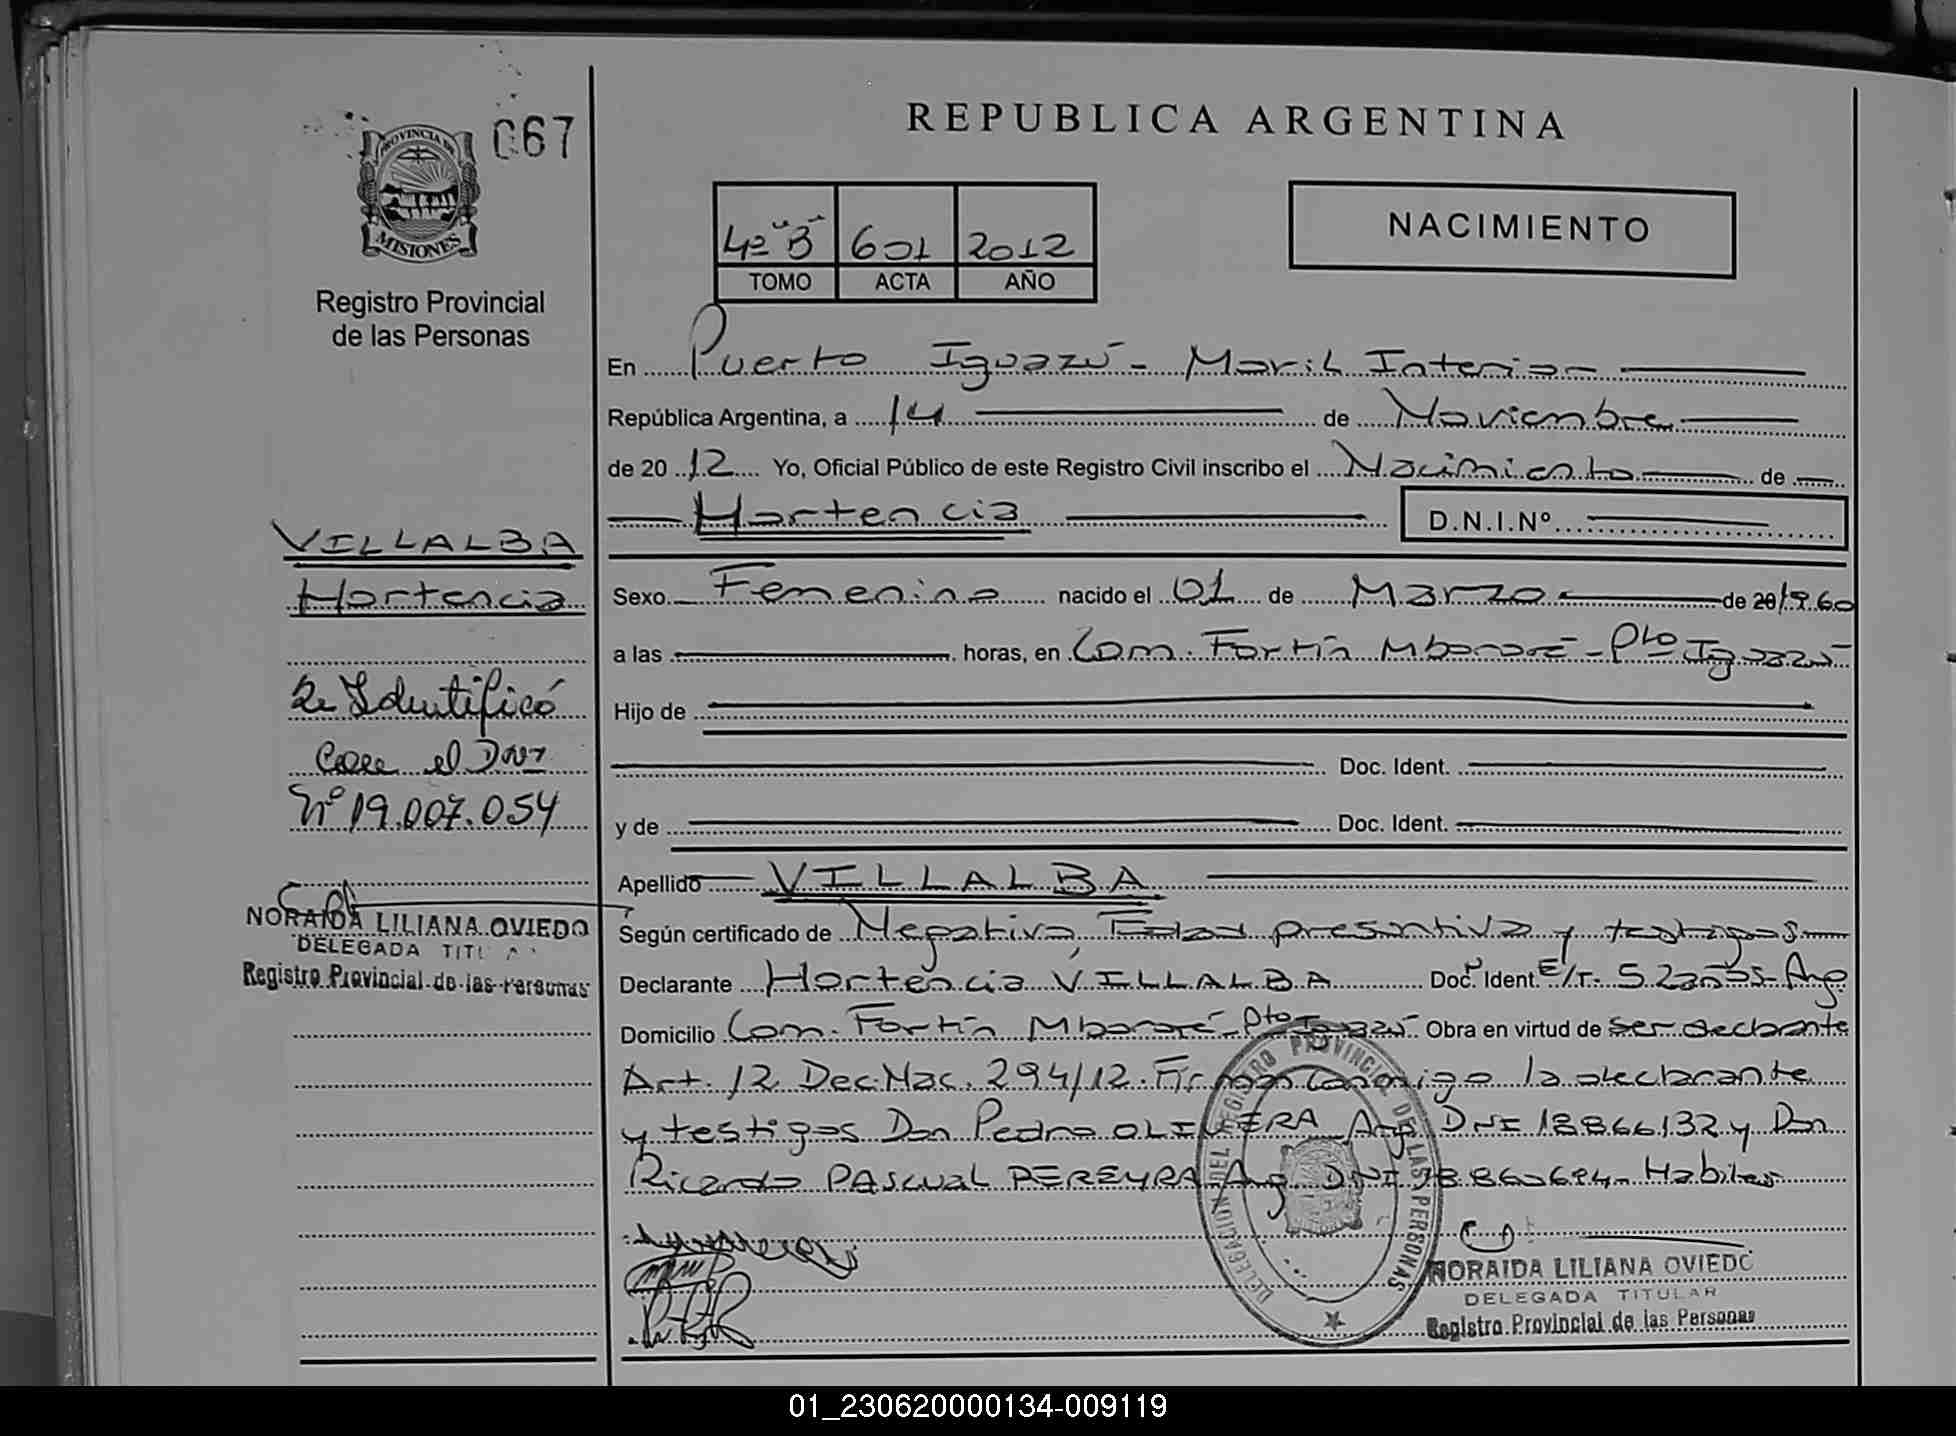 067
PROVINCIA DE
MISIONES
Registro Provincial
de las Personas
VILLALBA
Hortencia
Se Identificó
con el DNI
Nº 19.007.054
NORAIDA LILIANA OVIEDO
DELEGADA TITU
Registro Provincial de las Personas
REPUBLICA ARGENTINA
4º "B" 601 2012
TOMO ACTA AÑO
NACIMIENTO
En Puerto Iguazú - Movil Interior
República Argentina, a 14 de Noviembre
de 20 12 Yo, Oficial Público de este Registro Civil inscribo el Nacimiento de
Hortencia D.N.I.Nº
Sexo Femenino nacido el 01 de Marzo de 20/960
a las horas, en Com. Fortín Mbororé - Pto Iguazú
Hijo de
Doc. Ident.
y de Doc. Ident.
Apellido VILLALBA
Según certificado de Negativo, Edad presuntiva y testigos
Declarante Hortencia VILLALBA Doc. Ident. E/T. 52 años - Arg
Domicilio Com. Fortín Mbororé - Pto Iguazú Obra en virtud de ser declarante
Art. 12 Dec. Nac. 294/12. Firman conmigo la declarante
y testigos Don Pedro OLIVERA Arg DNI 18866132 y Don
Ricardo PASCUAL PEREYRA Arg DNI 18.860694 - Habiles
DELEGACION DEL REGISTRO PROVINCIAL DE LAS PERSONAS
NORAIDA LILIANA OVIEDO
DELEGADA TITULAR
Registro Provincial de las Personas
01_230620000134-009119